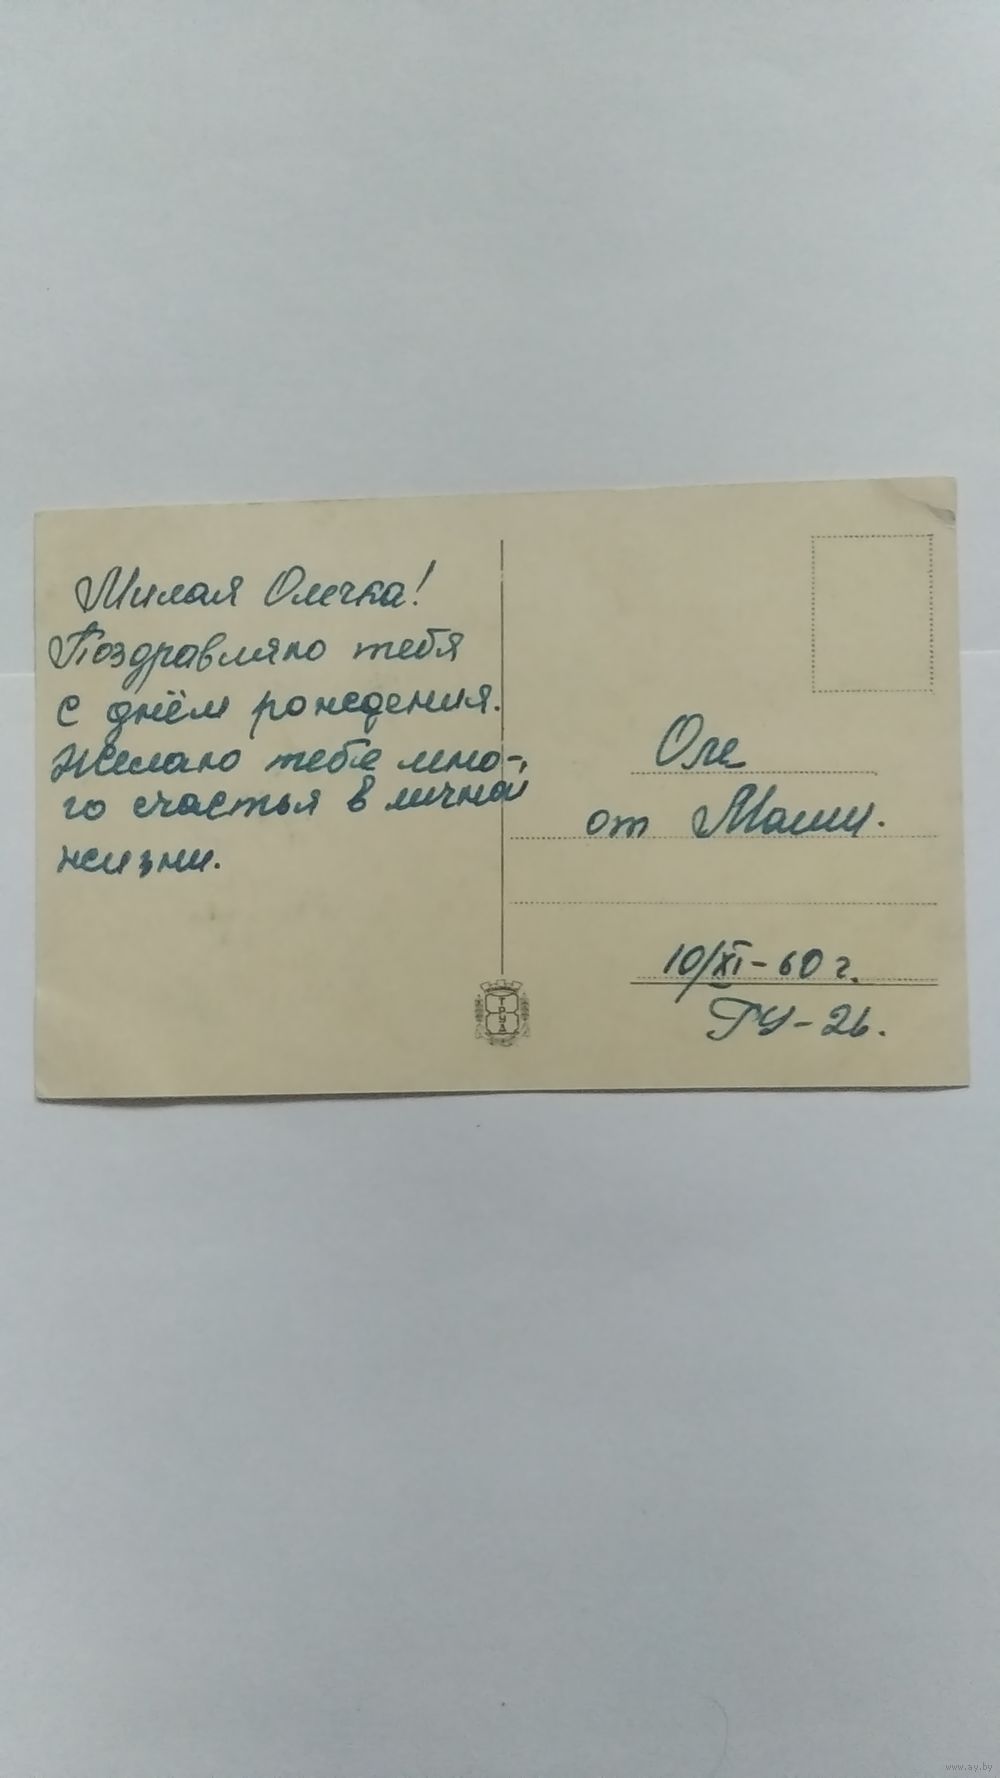 Милая Олечка!
Поздравляю тебя
с днём рождения.
Желаю тебе мно-
го счастья в личной
жизни.
Оле
от Маши.
10/XI-60 г.
ГУ-26.
ТРУД
www.ay.by